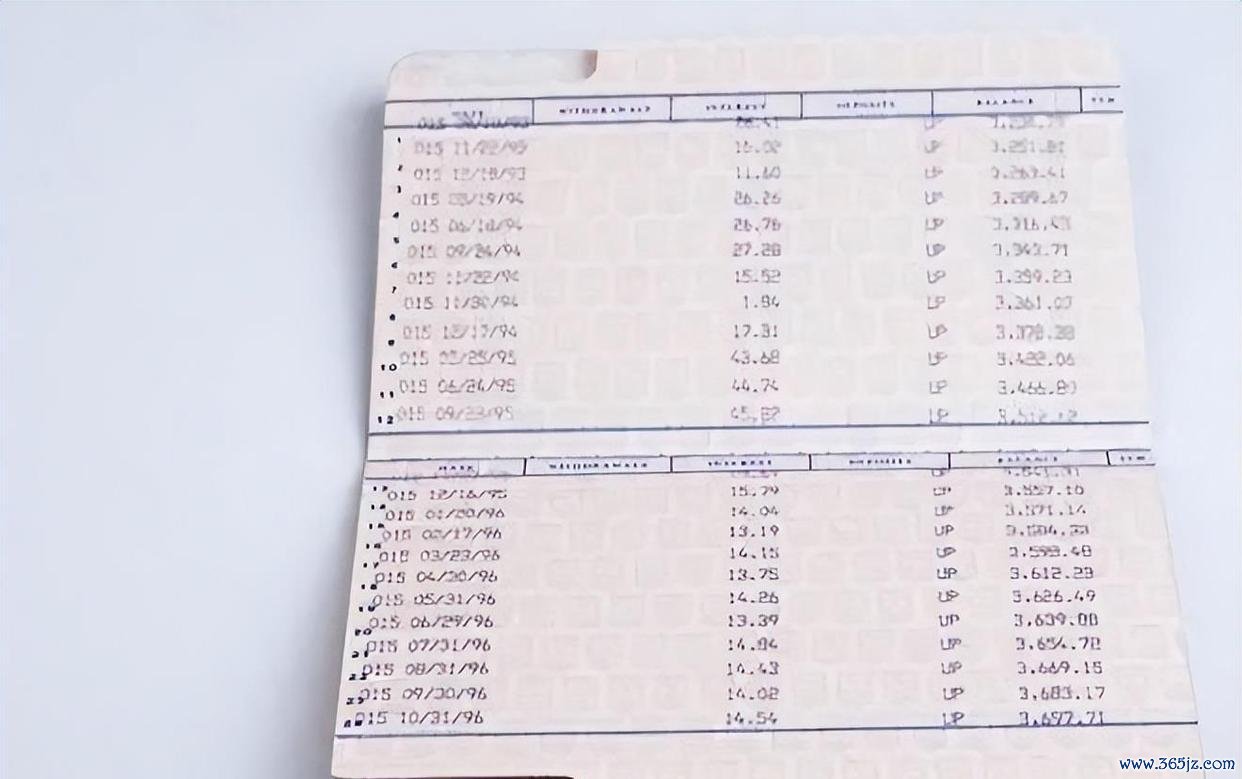 WITHDRAWALS INTEREST DEPOSITS BALANCE
015
015 11/22/93 16.02 UP 3.251.81
015 12/18/93 11.60 UP 3.263.41
015 03/19/94 26.26 UP 3.289.67
015 06/18/94 26.76 UP 3.316.43
015 09/24/94 27.28 UP 3.343.71
015 11/22/94 15.52 UP 3.359.23
015 11/30/94 1.84 UP 3.361.07
015 12/17/94 17.31 UP 3.378.38
10 015 03/25/95 43.68 UP 3.422.06
11 015 06/24/95 44.74 UP 3.466.80
12 015 09/23/95 UP
DATE WITHDRAWALS INTEREST DEPOSITS BALANCE
015 12/16/95 15.79 UP 3.557.10
015 01/20/96 14.04 UP 3.571.14
015 02/17/96 13.19 UP 3.584.33
015 03/23/96 14.15 UP 3.598.48
015 04/20/96 13.75 UP 3.612.23
015 05/31/96 14.26 UP 3.626.49
20 015 06/29/96 13.39 UP 3.639.88
21 015 07/31/96 14.84 UP 3.654.72
22 015 08/31/96 14.43 UP 3.669.15
23 015 09/30/96 14.02 UP 3.683.17
24 015 10/31/96 14.54 UP 3.697.71
www.365jz.com